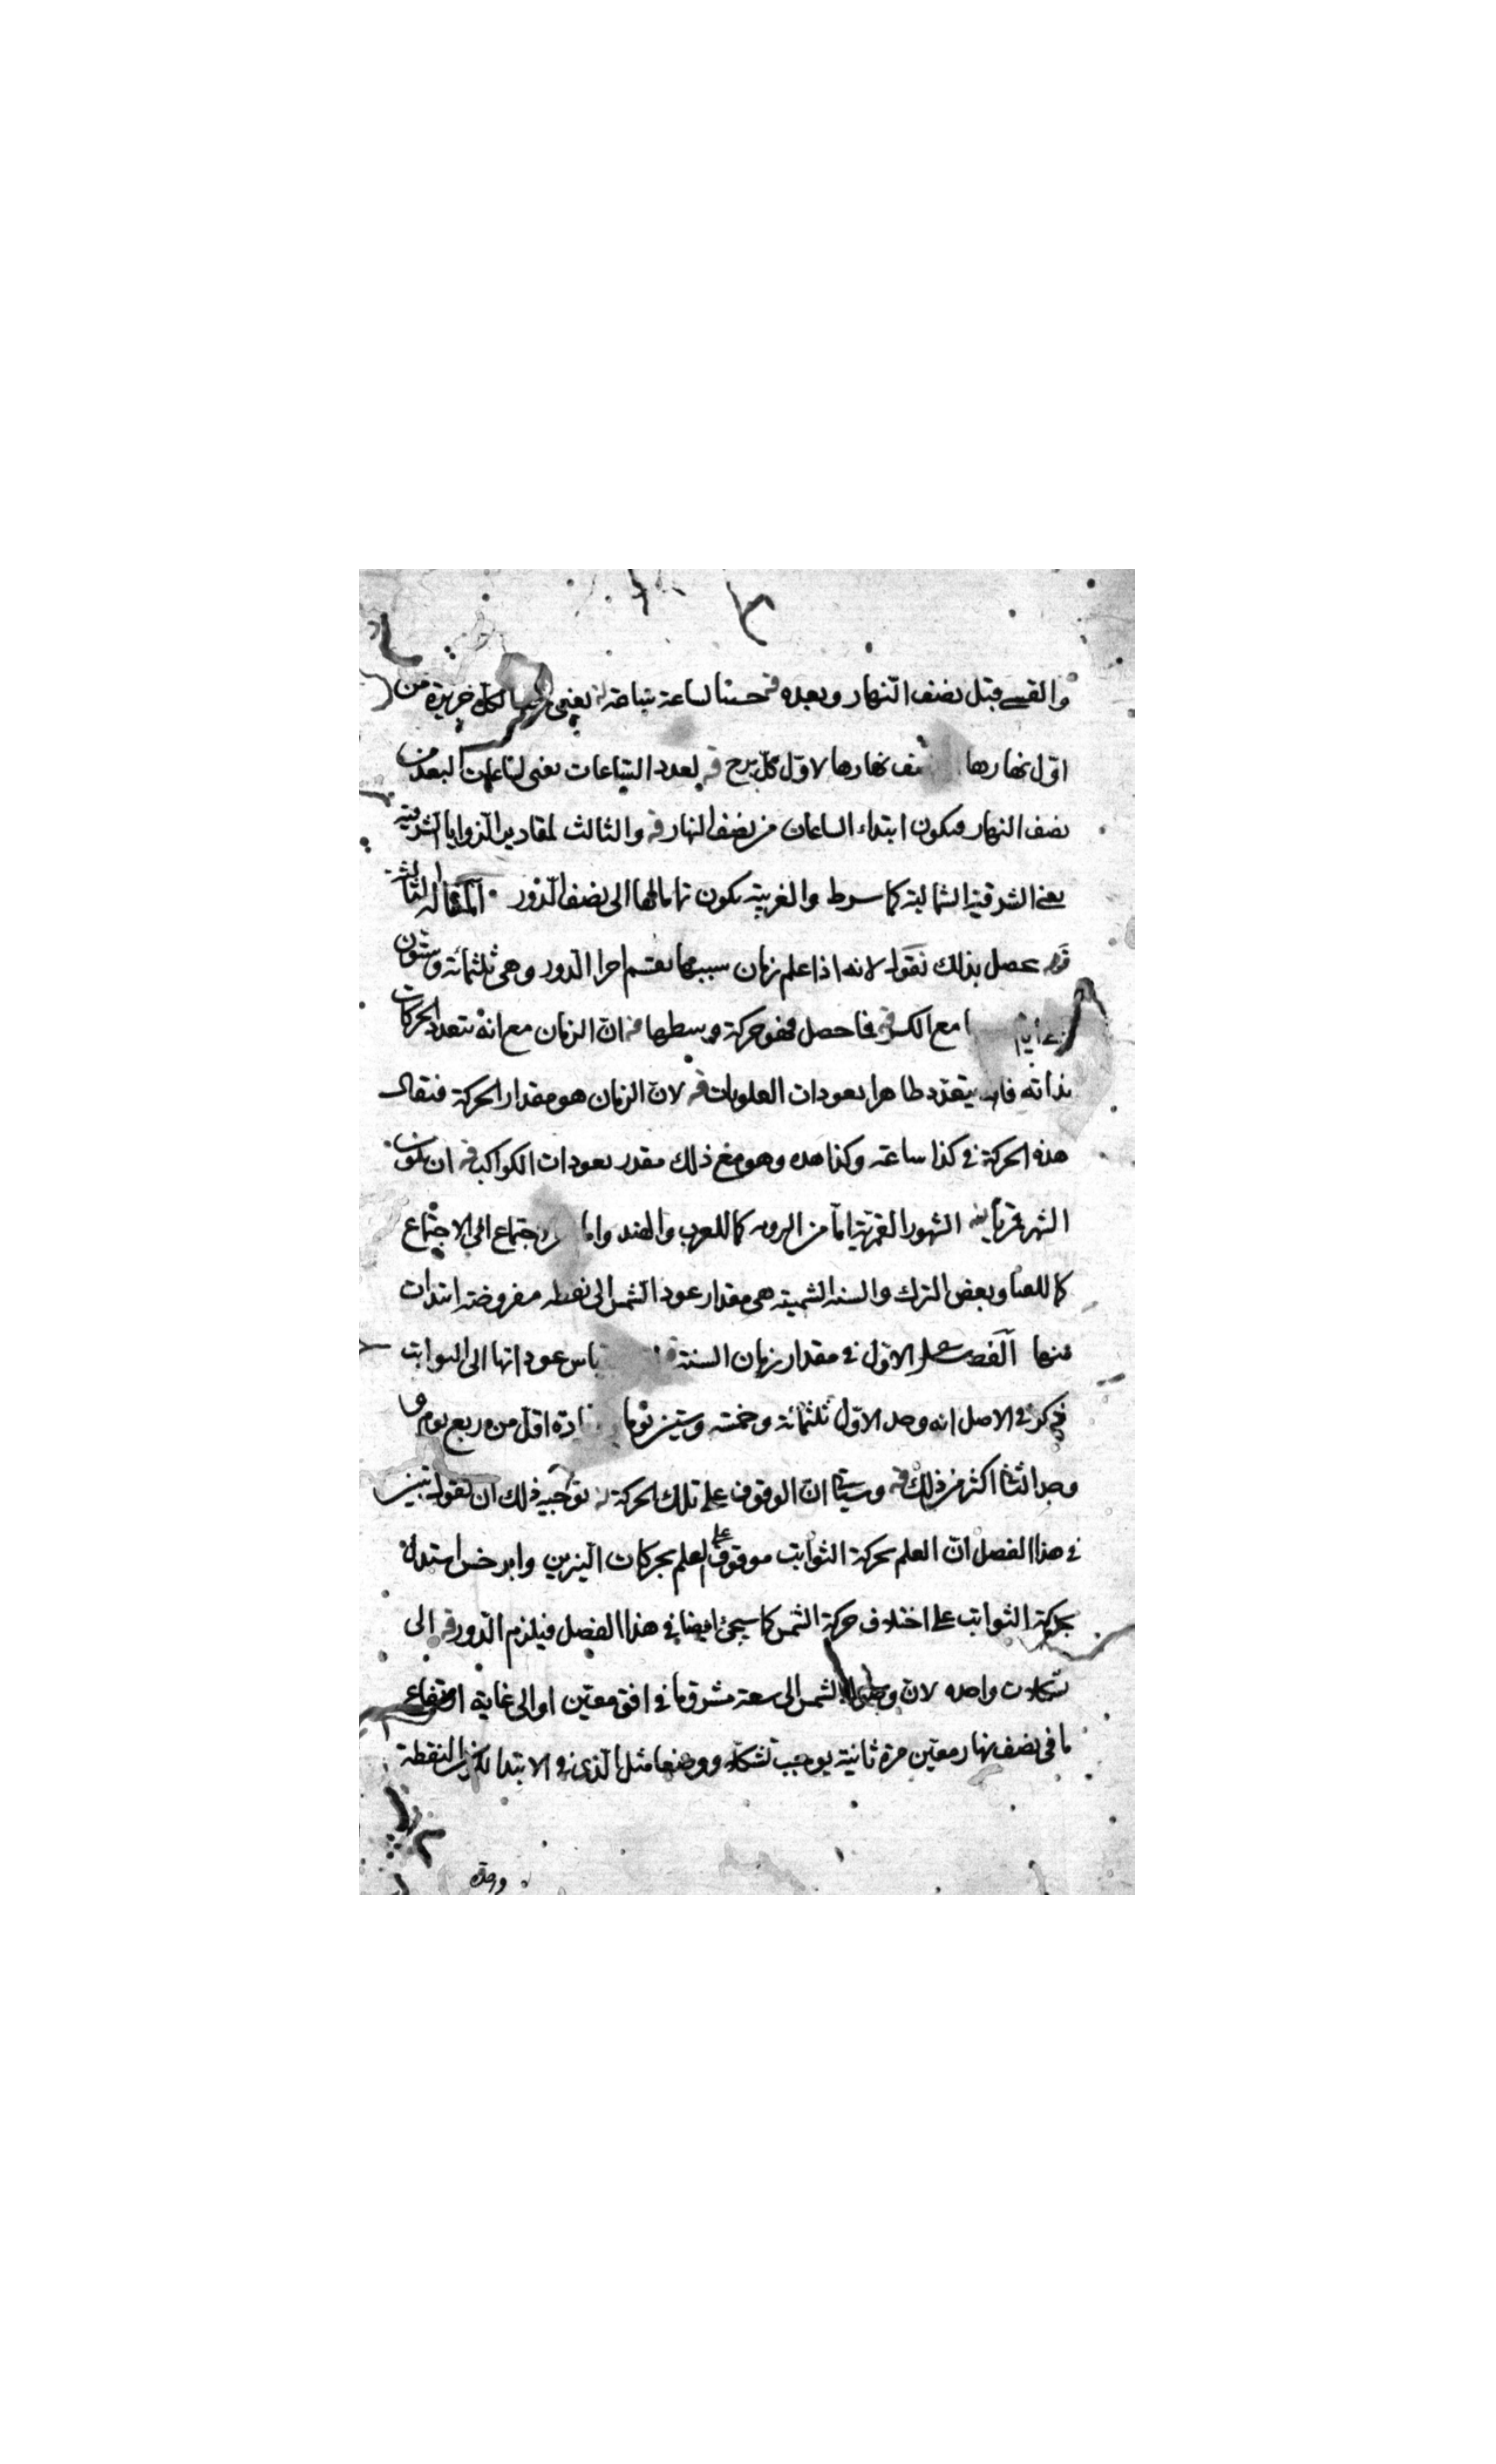 والقسي قبل نصف النهار وبعده قه حسبنا لساعة ساعة له يعني لكل جزيرة من
اول نهارها نصف نهارها لاول كل برج قه لعدد الساعات يعني لساعات البعد من
نصف النهار فيكون ابتداء الساعات من نصف النهار قه والثالث لمقادير الزوايا الشرقية
يعني الشرقية الشمالية كما سرط والغربية يكون تماماتها الى نصف الدور المقالة الثالثة
قوله حصل بذلك نقول لانه اذا علم زمان سببها نقسم اجزا الدور وهي ثلثمائة وستون
ايام مع الكسر فما حصل فهو حركة وسطها قه ان الزمان مع انه بتعدد الحركات
بذاته فانه يتعدد ظاهرا بعودات العلويات قه لان الزمان هو مقدار الحركة فيقال
هذه الحركة في كذا ساعة وكذا هذه وهو مع ذلك مقدر بعودات الكواكب قه ان يكون
الشهر قمريا له الشهور القمرية اما من الرويه كما للعرب والهند واما الاجتماع الى الاجتماع
كما للصا وبعض الترك والسنة الشمسية هي مقدار عود الشمس الى نقطة مفروضة ابتدات
منها الفصل الاول في مقدار زمان السنة قياس عوداتها الى الثوابت
ذكر في الاصل انه وجد الاول ثلثمائة وخمسة وستين يوما وزيادة اقل من ربع يوم و
وجد الثاني اكثر من ذلك قه وسياتي ان الوقوف على تلك الحركة له توجيه ذلك ان نقول تبين
في هذا الفصل ان العلم بحركة الثوابت موقوف على العلم بحركات النيرين وابرخس استدل
بحركة الثوابت على اختلاف حركة الشمس كما سيجئ ايضا في هذا الفصل فيلزم الدور قه الى
تشكلات واحدة لان وصول الشمس الى سعة مشرق ما في افق معين او الى غاية ارتفاع
ما في نصف نهار معين مرة ثانية يوجب تشكلا ووضعا مثل الذي في الابتدا لكن النقطة
وحده